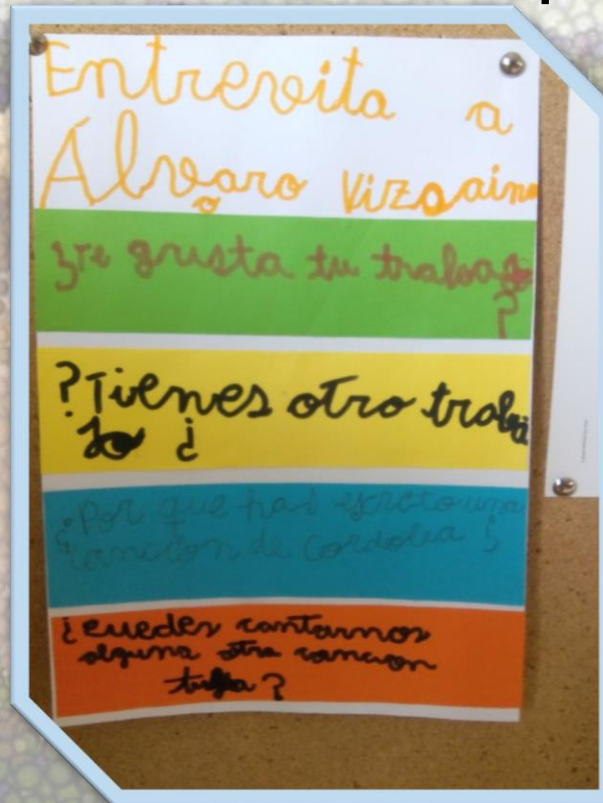 Entrevita a
Álvaro Vizcaino
¿Te gusta tu trabajo
?
?Tienes otro traba
jo ¿
¿Por que has escrito una
cancion de Cordoba ¿
¿Puedes cantarnos
alguna otra cancion
tuya ?